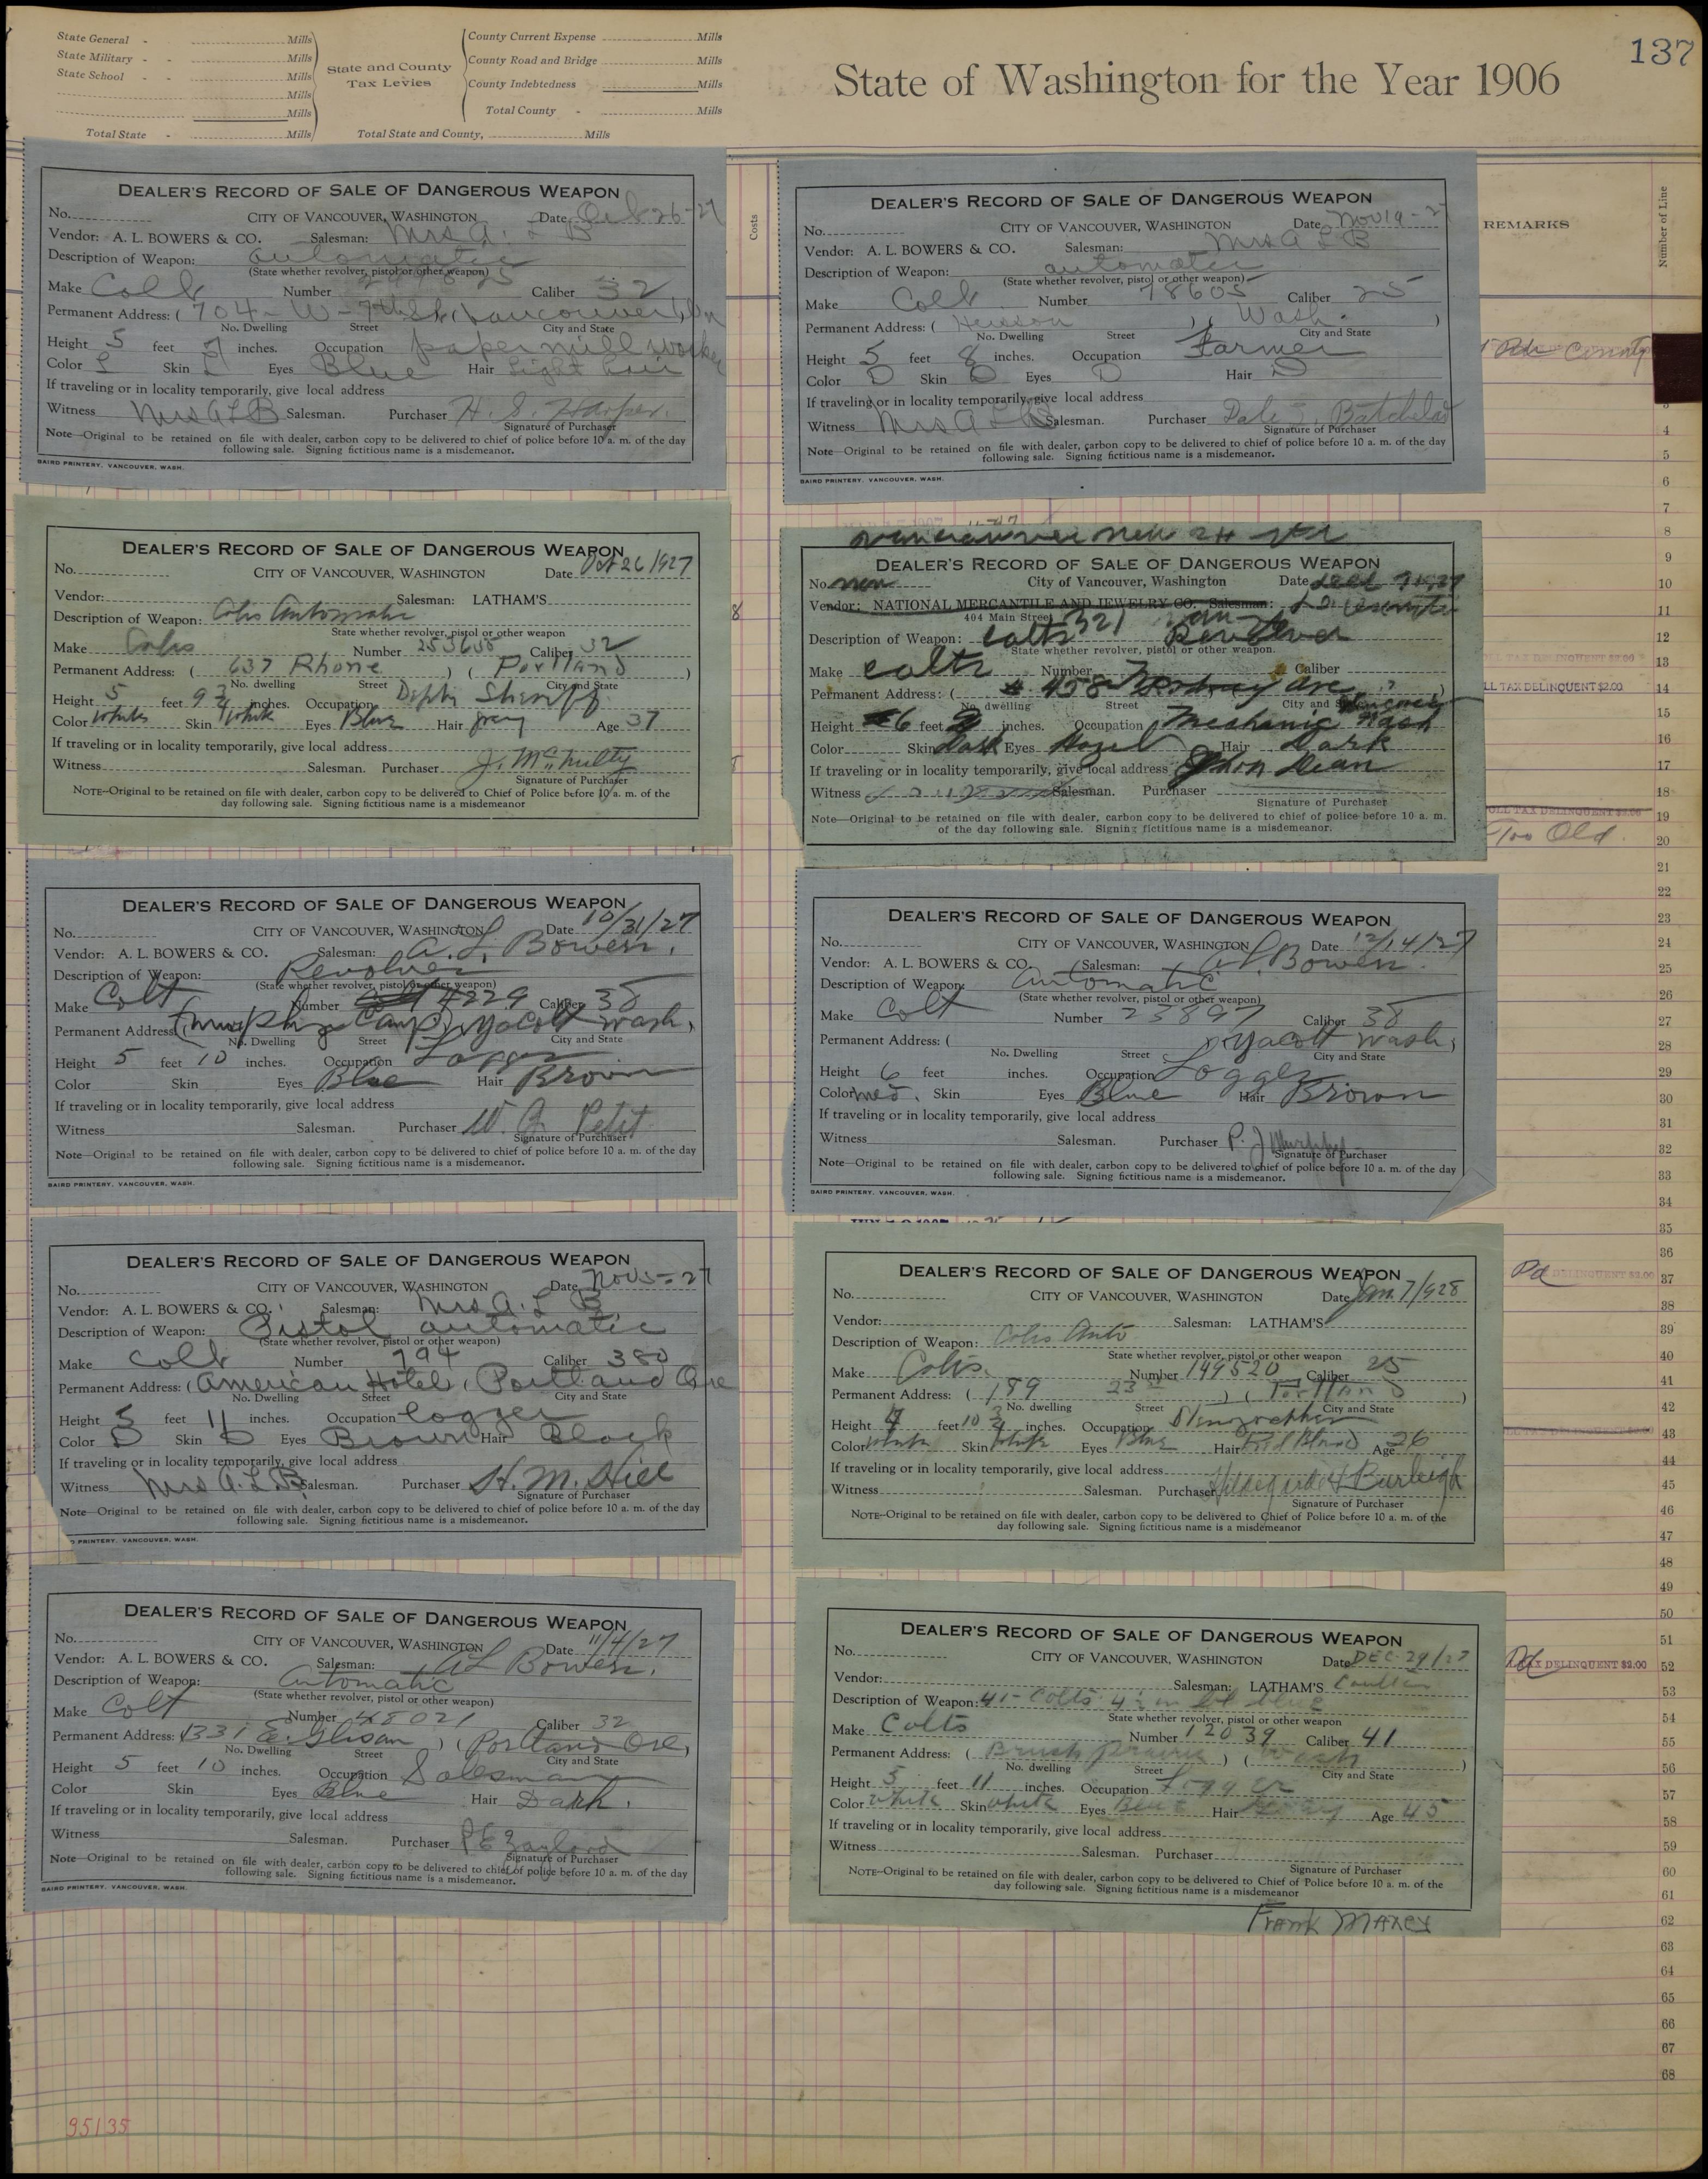 State General - Mills
State Military - - Mills
State School - - Mills
Mills
Mills
Total State - Mills
State and County
Tax Levies
County Current Expense Mills
County Road and Bridge Mills
County Indebtedness Mills
Total County - Mills
Total State and County, Mills
State of Washington for the Year 1906
137
Costs
REMARKS
Number of Line
DEALER'S RECORD OF SALE OF DANGEROUS WEAPON
No. CITY OF VANCOUVER, WASHINGTON Date Oct 26-27
Vendor: A. L. BOWERS & CO. Salesman: Mrs A. L B
Description of Weapon: automatic
(State whether revolver, pistol or other weapon)
Make Colt Number Caliber 32
Permanent Address: ( 704 - W - 7th St (Vancouver) Wn
No. Dwelling Street City and State
Height 5 feet 7 inches. Occupation papermill worker
Color L Skin L Eyes Blue Hair Light hair
If traveling or in locality temporarily, give local address
Witness Mrs A L B Salesman. Purchaser H. S. Harper.
Signature of Purchaser
Note—Original to be retained on file with dealer, carbon copy to be delivered to chief of police before 10 a. m. of the day
following sale. Signing fictitious name is a misdemeanor.
BAIRD PRINTERY, VANCOUVER, WASH.
DEALER'S RECORD OF SALE OF DANGEROUS WEAPON
No. CITY OF VANCOUVER, WASHINGTON Date Oct 26 1927
Vendor: Salesman: LATHAM'S
Description of Weapon: Colts Automatic
State whether revolver, pistol or other weapon
Make Colts Number 253655 Caliber 32
Permanent Address: ( 637 Rhone ) ( Portland )
No. dwelling Street City and State
Height 5 feet 9 3/4 inches. Occupation Depty Sheriff
Color White Skin White Eyes Blue Hair gray Age 37
If traveling or in locality temporarily, give local address
Witness Salesman. Purchaser J. McNulty
Signature of Purchaser
NOTE—Original to be retained on file with dealer, carbon copy to be delivered to Chief of Police before 10 a. m. of the
day following sale. Signing fictitious name is a misdemeanor
DEALER'S RECORD OF SALE OF DANGEROUS WEAPON
No. CITY OF VANCOUVER, WASHINGTON Date 10/31/27
Vendor: A. L. BOWERS & CO. Salesman: A. L. Bowers.
Description of Weapon: Revolver
(State whether revolver, pistol or other weapon)
Make Colt Number 4229 Caliber 38
Permanent Address: (Murphy Camp) Yacolt Wash.
No. Dwelling Street City and State
Height 5 feet 10 inches. Occupation Logger
Color Skin Eyes Blue Hair Brown
If traveling or in locality temporarily, give local address
Witness Salesman. Purchaser W. J. Petit
Signature of Purchaser
Note—Original to be retained on file with dealer, carbon copy to be delivered to chief of police before 10 a. m. of the day
following sale. Signing fictitious name is a misdemeanor.
BAIRD PRINTERY, VANCOUVER, WASH.
DEALER'S RECORD OF SALE OF DANGEROUS WEAPON
No. CITY OF VANCOUVER, WASHINGTON Date Nov 5 - 27
Vendor: A. L. BOWERS & CO. Salesman: Mrs A. L B
Description of Weapon: Pistol automatic
(State whether revolver, pistol or other weapon)
Make Colt Number 794 Caliber 380
Permanent Address: ( American Hotel, Portland Ore
No. Dwelling Street City and State
Height 5 feet 11 inches. Occupation logger
Color D Skin D Eyes Brown Hair Black
If traveling or in locality temporarily, give local address
Witness Mrs A. L. B. Salesman. Purchaser H. M. Hill
Signature of Purchaser
Note—Original to be retained on file with dealer, carbon copy to be delivered to chief of police before 10 a. m. of the day
following sale. Signing fictitious name is a misdemeanor.
PRINTERY, VANCOUVER, WASH.
DEALER'S RECORD OF SALE OF DANGEROUS WEAPON
No. CITY OF VANCOUVER, WASHINGTON Date 11/4/27
Vendor: A. L. BOWERS & CO. Salesman: A L Bowers.
Description of Weapon: Automatic
(State whether revolver, pistol or other weapon)
Make Colt Number 48021 Caliber 32
Permanent Address: 1331 E. Glisan ) (Portland Ore)
No. Dwelling Street City and State
Height 5 feet 10 inches. Occupation Salesman
Color Skin Eyes Blue Hair Dark.
If traveling or in locality temporarily, give local address
Witness Salesman. Purchaser P E
Signature of Purchaser
Note—Original to be retained on file with dealer, carbon copy to be delivered to chief of police before 10 a. m. of the day
following sale. Signing fictitious name is a misdemeanor.
BAIRD PRINTERY, VANCOUVER, WASH.
95135
DEALER'S RECORD OF SALE OF DANGEROUS WEAPON
No. CITY OF VANCOUVER, WASHINGTON Date Nov 19 - 27
Vendor: A. L. BOWERS & CO. Salesman: Mrs A L B
Description of Weapon: automatic
(State whether revolver, pistol or other weapon)
Make Colt Number 78605 Caliber 25
Permanent Address: ( Heisson ) ( Wash. )
No. Dwelling Street City and State
Height 5 feet 8 inches. Occupation Farmer
Color D Skin D Eyes D Hair D
If traveling or in locality temporarily, give local address
Witness Mrs A L B Salesman. Purchaser Dale Batchelor
Signature of Purchaser
Note—Original to be retained on file with dealer, carbon copy to be delivered to chief of police before 10 a. m. of the day
following sale. Signing fictitious name is a misdemeanor.
BAIRD PRINTERY, VANCOUVER, WASH.
Vancouver
DEALER'S RECORD OF SALE OF DANGEROUS WEAPON
No. City of Vancouver, Washington Date 1927
Vendor: NATIONAL MERCANTILE AND JEWELRY CO. Salesman:
404 Main Street 321
Description of Weapon: Colts Revolver
State whether revolver, pistol or other weapon.
Make Colts Number Caliber
Permanent Address: ( # 458 Ave )
No. dwelling Street City and State
Height 6 feet inches. Occupation Mechanic Wash
Color Skin Dark Eyes Hazel Hair Dark
If traveling or in locality temporarily, give local address Dean
Witness Salesman. Purchaser
Signature of Purchaser
Note—Original to be retained on file with dealer, carbon copy to be delivered to chief of police before 10 a. m.
of the day following sale. Signing fictitious name is a misdemeanor.
DEALER'S RECORD OF SALE OF DANGEROUS WEAPON
No. CITY OF VANCOUVER, WASHINGTON Date 12/14/27
Vendor: A. L. BOWERS & CO. Salesman: A L Bowers.
Description of Weapon: Automatic
(State whether revolver, pistol or other weapon)
Make Colt Number 23897 Caliber 38
Permanent Address: ( Yacolt Wash.
No. Dwelling Street City and State
Height 6 feet inches. Occupation Logger
Color Med. Skin Eyes Blue Hair Brown
If traveling or in locality temporarily, give local address
Witness Salesman. Purchaser P. J Murphy
Signature of Purchaser
Note—Original to be retained on file with dealer, carbon copy to be delivered to chief of police before 10 a. m. of the day
following sale. Signing fictitious name is a misdemeanor.
BAIRD PRINTERY, VANCOUVER, WASH.
DEALER'S RECORD OF SALE OF DANGEROUS WEAPON
No. CITY OF VANCOUVER, WASHINGTON Date Jan. 7/1928
Vendor: Salesman: LATHAM'S
Description of Weapon: Colts Auto
State whether revolver, pistol or other weapon
Make Colts. Number 149520 Caliber 25
Permanent Address: ( 189 23rd ) ( Portland )
No. dwelling Street City and State
Height feet 10 3/4 inches. Occupation Stenographer
Color White Skin White Eyes Blue Hair Age 26
If traveling or in locality temporarily, give local address
Witness Salesman. Purchaser Hildegarde H Burleigh
Signature of Purchaser
NOTE—Original to be retained on file with dealer, carbon copy to be delivered to Chief of Police before 10 a. m. of the
day following sale. Signing fictitious name is a misdemeanor
DEALER'S RECORD OF SALE OF DANGEROUS WEAPON
No. CITY OF VANCOUVER, WASHINGTON Date DEC. 29/27
Vendor: Salesman: LATHAM'S
Description of Weapon: 41 - Colts 4 1/2 in bbl blue
State whether revolver, pistol or other weapon
Make Colts Number 12039 Caliber 41
Permanent Address: ( Brush Prairie ) ( Wash )
No. dwelling Street City and State
Height 5 feet 11 inches. Occupation Logger
Color White Skin White Eyes Blue Hair Age 45
If traveling or in locality temporarily, give local address
Witness Salesman. Purchaser
Signature of Purchaser
NOTE—Original to be retained on file with dealer, carbon copy to be delivered to Chief of Police before 10 a. m. of the
day following sale. Signing fictitious name is a misdemeanor
Frank Maxey
County
3
4
5
6
7
8
9
10
11
12
13
LL TAX DELINQUENT $2.00
14
15
16
17
18
OLL TAX DELINQUENT $2.00
19
Too Old.
20
21
22
23
24
25
26
27
28
29
30
31
32
33
34
35
36
Pd DELINQUENT $2.00
37
38
39
40
41
42
43
44
45
46
47
48
49
50
51
Pd TAX DELINQUENT $2.00
52
53
54
55
56
57
58
59
60
61
62
63
64
65
66
67
68